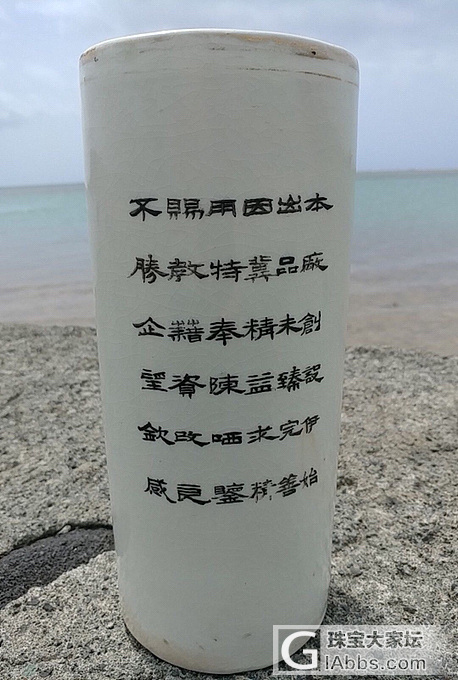 本廠創設伊始
出品未臻完善
因冀精益求精
用特奉陳哂鑒
賜教藉資改良
不勝企望欽感
G 珠宝大家坛
GIAbbs.com